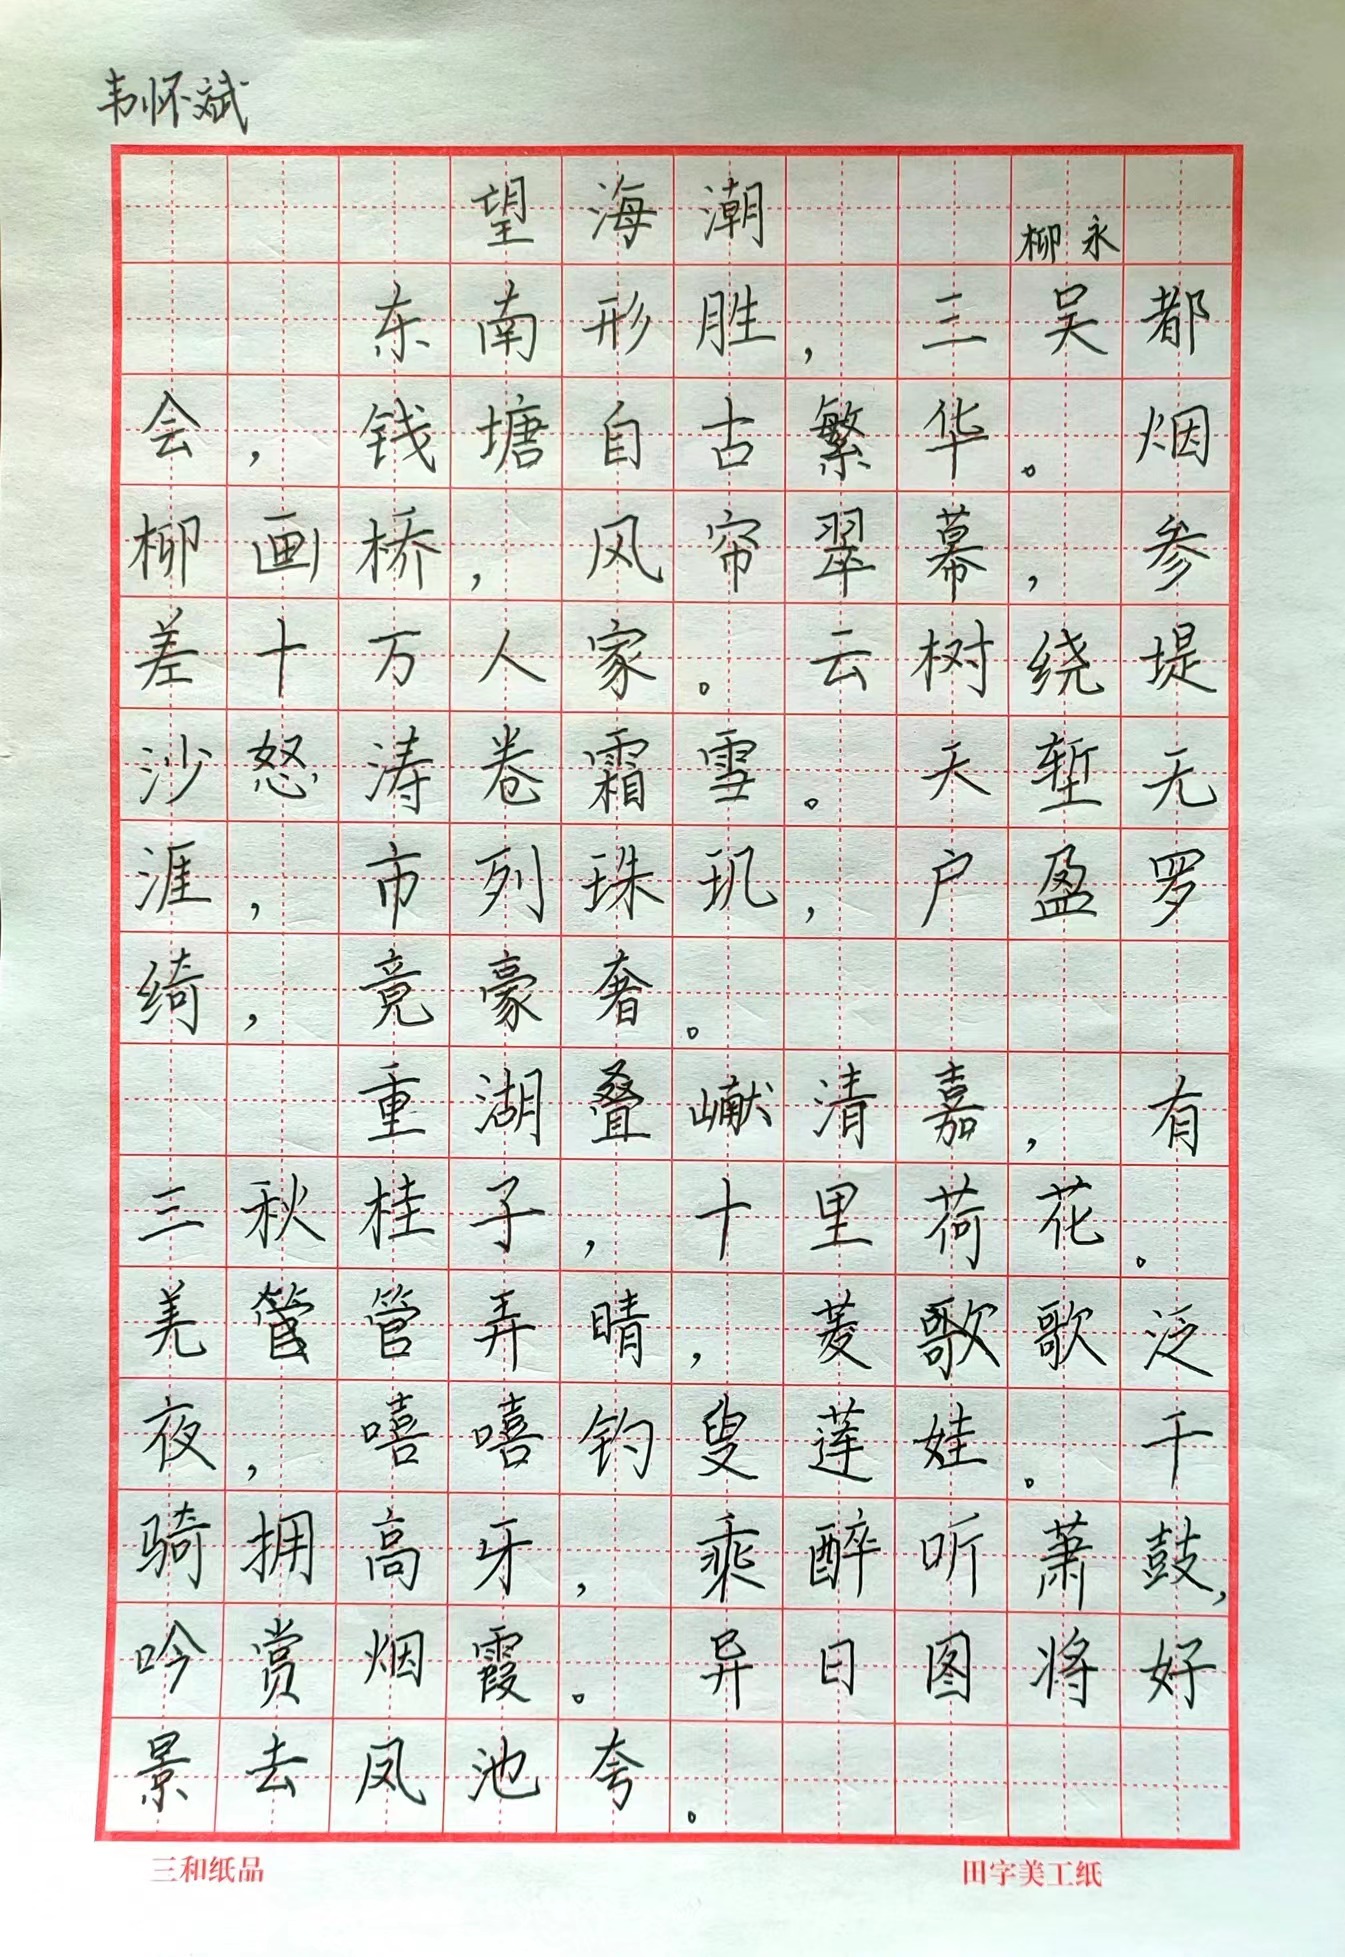 韦怀斌
望海潮
柳永
东南形胜，三吴都
会，钱塘自古繁华。烟
柳画桥，风帘翠幕，参
差十万人家。云树绕堤
沙怒涛卷霜雪。天堑无
涯，市列珠玑，户盈罗
绮，竟豪奢。
重湖叠巘清嘉，有
三秋桂子，十里荷花。
羌管管弄晴，菱歌歌泛
夜，嘻嘻钓叟莲娃。千
骑拥高牙，乘醉听萧鼓，
吟赏烟霞。异日图将好
景去凤池夸。
三和纸品
田字美工纸